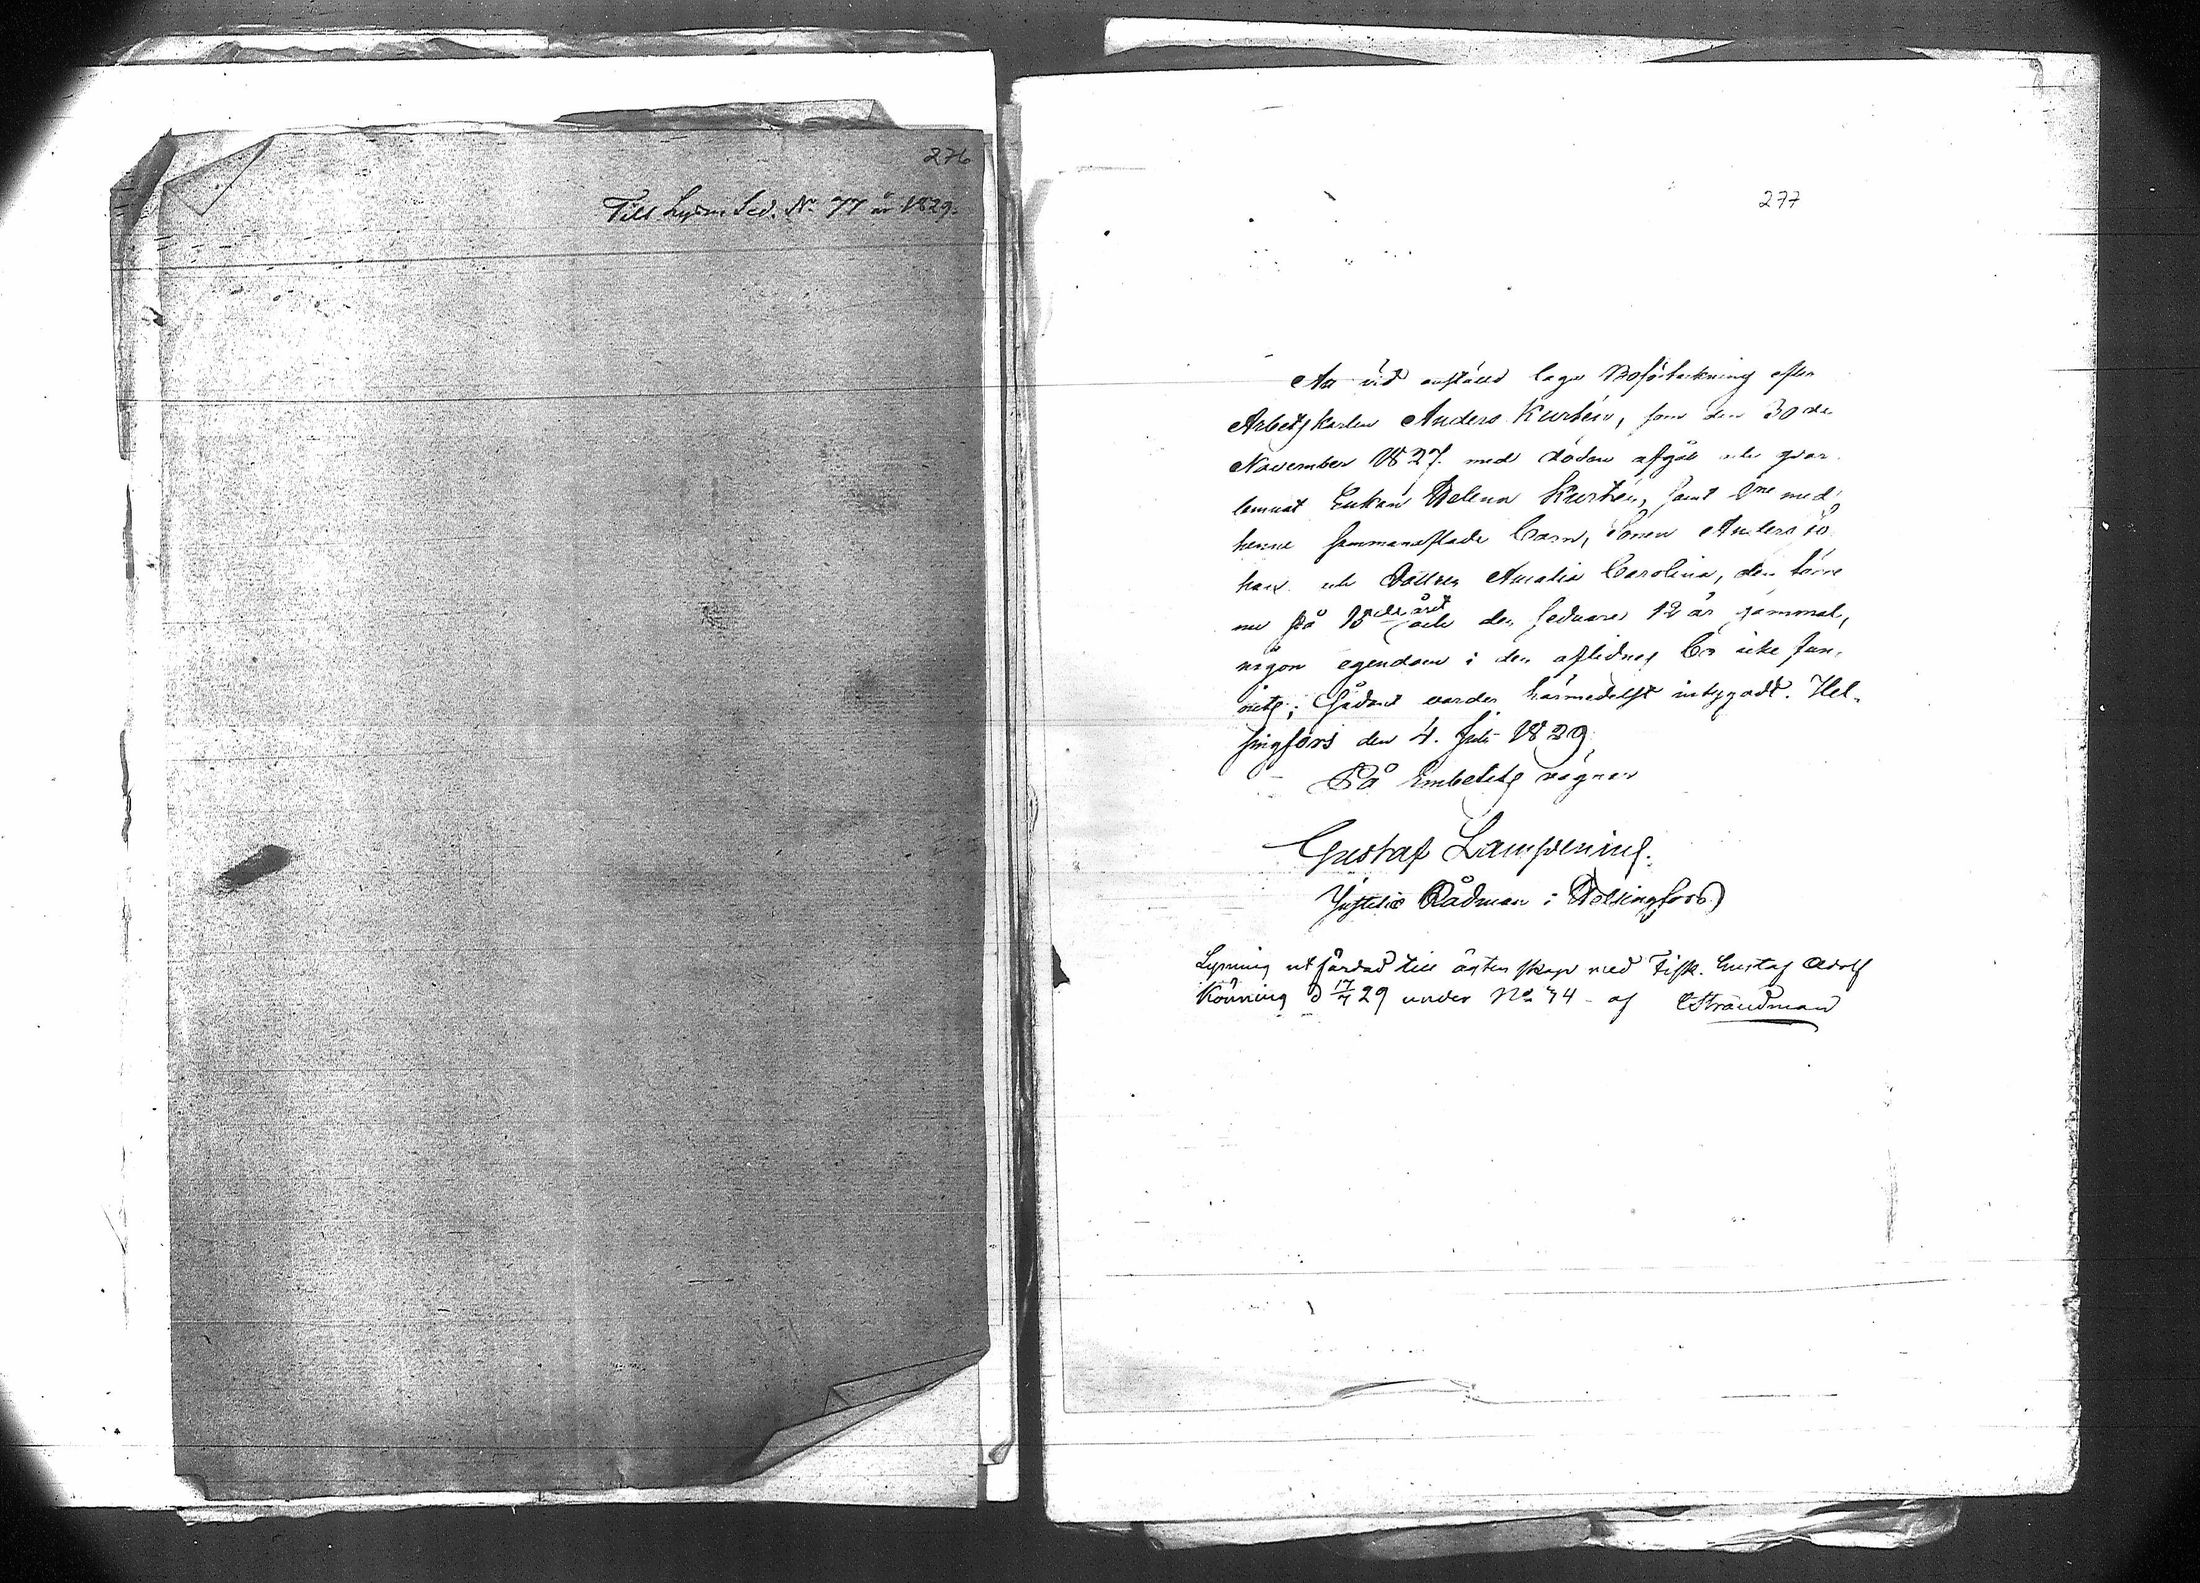 276
Till Lysn. Sed. No 77 år 1829.
277
Att vid anstäld laga Boförteckning efter
Arbetskarlen Anders Kurtén, som den 30de
November 1827. med döden afgått och qvar
lemnat Enkan Helena Kurtén, samt med
henne sammanaflade Barn, Sonen Anders Jo
han och Dottren Amalia Carolina, den förre
nu på 15de året och den sednare 12 år gammal,
någon egendom i den aflidnes Bo icke fun-
nits; Sådant varder härmedelst intygadt. Hel-
singfors den 4. Juli 1829.
På Embetets vägnar
Gustaf Lampenius.
Justitiæ Rådman i Helsingfors
Lysning utfärdad till äktenskap med Fisk. Gustaf Adolf
Könning d 17/7 29 under No 74 af CStrandman